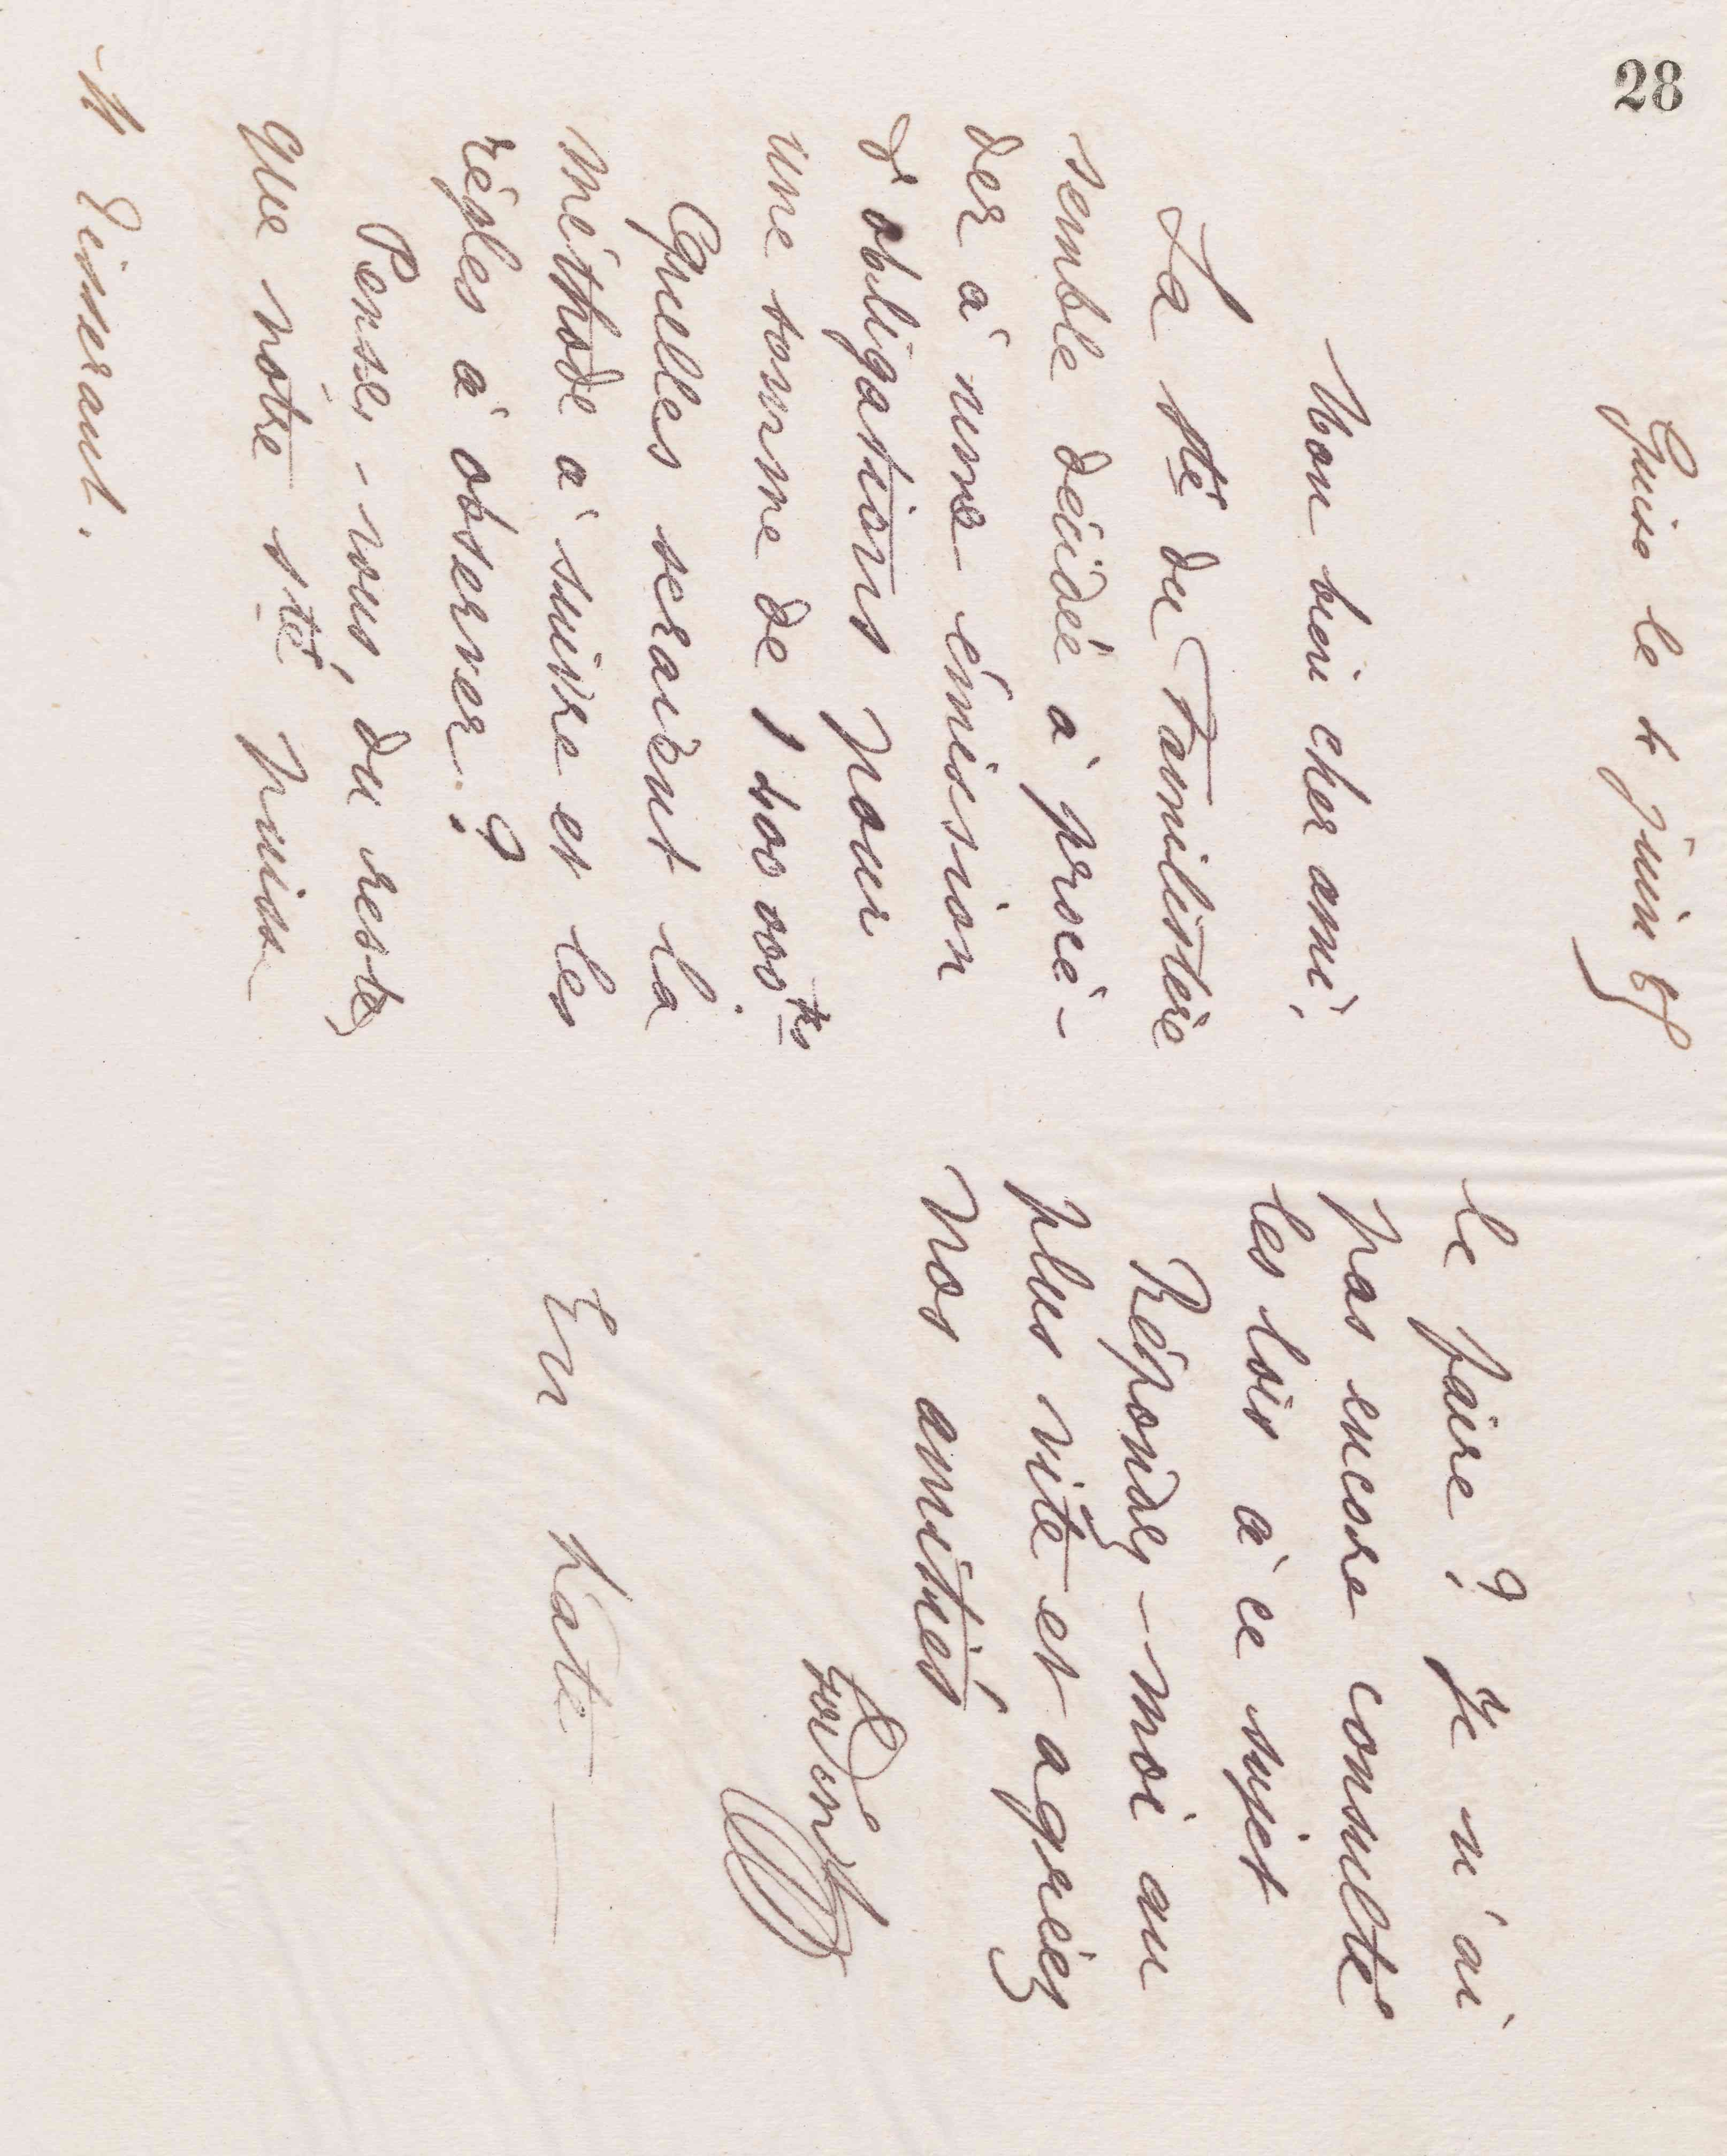 28
Guise le 4 juin 87
Mon bien cher ami,
La sté du Familistère
semble décidée à procé-
der à une émission
d'obligations pour
une somme de 1 500 000 frs
Quelles seraient la
méthode à suivre et les
règles à observer ?
Pensez-vous, du reste,
que nôtre sté puisse
M Tisserant.
le faire ? Je n'ai
pas encore consulté
les lois à ce sujet
Répondez-moi au
plus vite et agréez
nos amitiés
Godin
En hâte